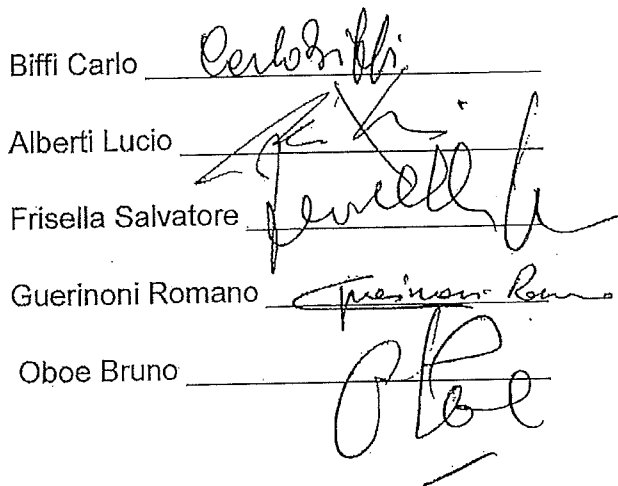 Biffi Carlo Carlo Biffi
Alberti Lucio
Frisella Salvatore
Guerinoni Romano Guerinoni Romano
Oboe Bruno Oboe